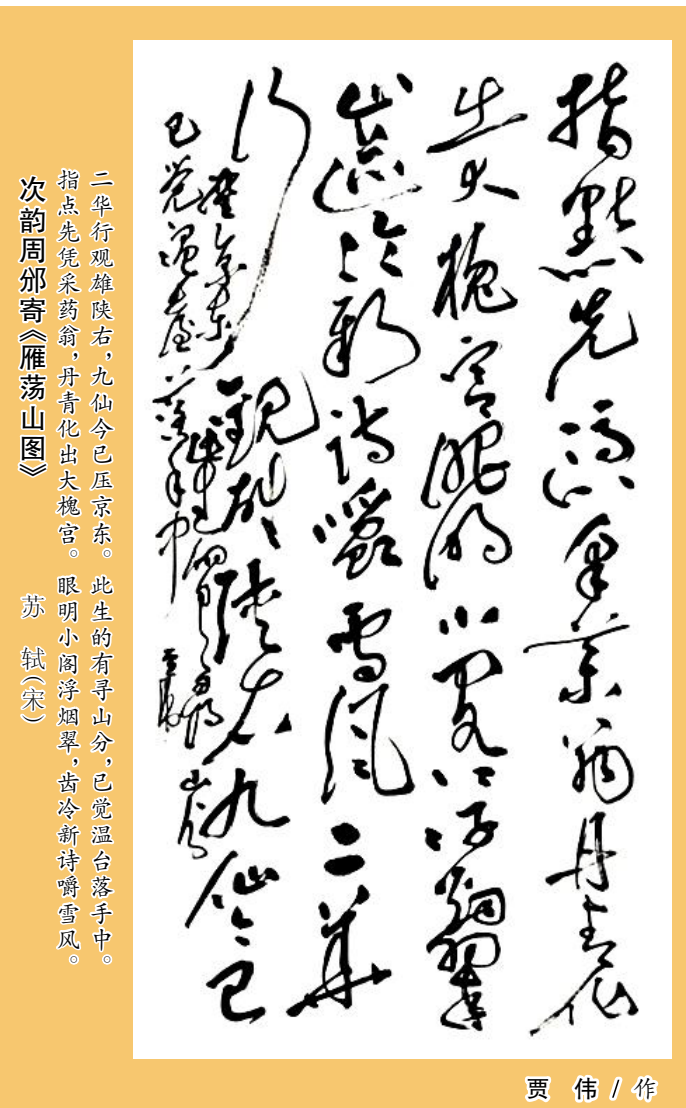 指點先凭采药翁丹青化
出大槐宫眼明小阁浮烟翠
齿冷新诗嚼雪风二華
行觀雄陕右九仙今已
壓京东此生的有尋山分
已觉温台落手中
二华行观雄陕右，九仙今已压京东。此生的有寻山分，已觉温台落手中。
指点先凭采药翁，丹青化出大槐宫。眼明小阁浮烟翠，齿冷新诗嚼雪风。
次韵周邠寄《雁荡山图》 苏 轼（宋）
贾 伟 / 作